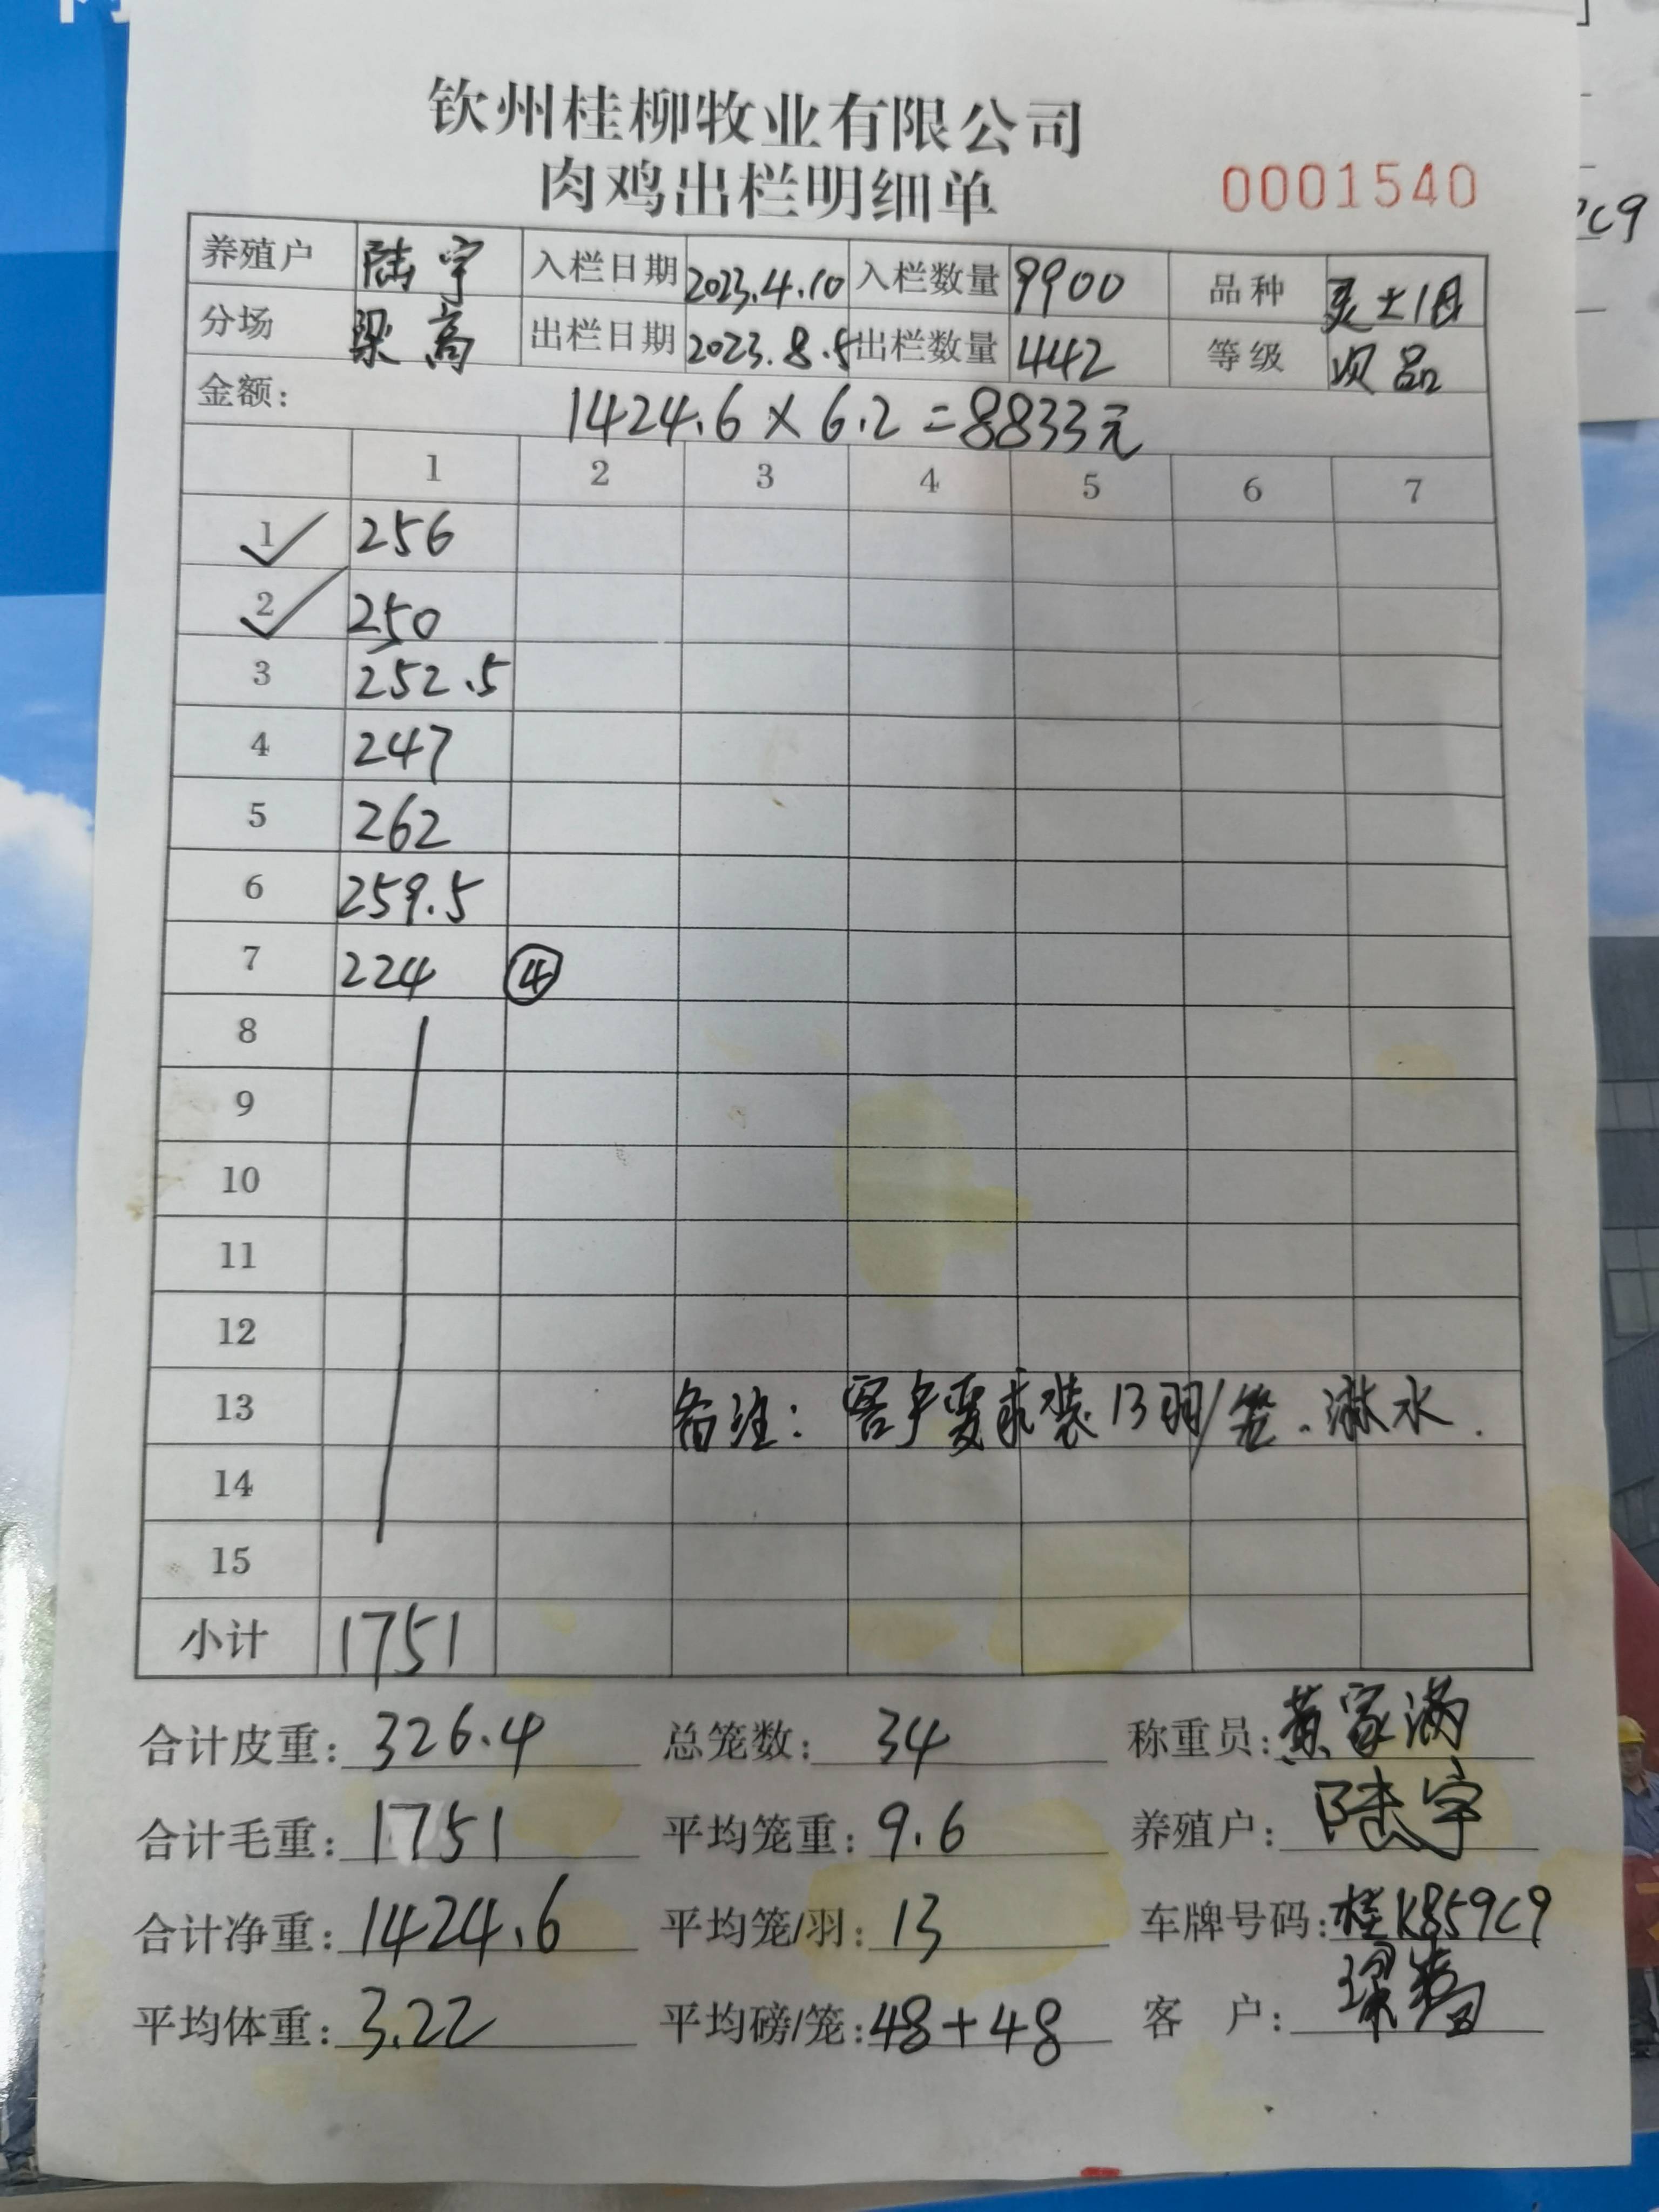 钦州桂柳牧业有限公司
肉鸡出栏明细单 0001540
养殖户 陆宇 入栏日期 2023.4.10 入栏数量 9900 品种 灵土1母
分场 梁高 出栏日期 2023.8.5 出栏数量 442 等级 次品
金额: 1424.6×6.2=8833元
1 2 3 4 5 6 7
1 256
2 250
3 252.5
4 247
5 262
6 259.5
7 224 ④
8
9
10
11
12
13 备注:客户要求装13羽/笼.淋水.
14
15
小计 1751
合计皮重: 326.4 总笼数: 34 称重员: 黄家满
合计毛重: 1751 平均笼重: 9.6 养殖户: 陆宇
合计净重: 1424.6 平均笼/羽: 13 车牌号码: 桂K859C9
平均体重: 3.22 平均磅/笼: 48+48 客 户:
C9